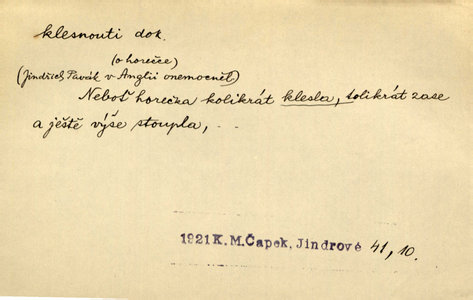 klesnouti dok.
(o horečce)
(Jindřich Pavák v Anglii onemocněl)
Neboť horečka kolikrát klesla, tolikrát zase
a ještě výše stoupla,
1921 K. M. Čapek, Jindrové 41, 10.